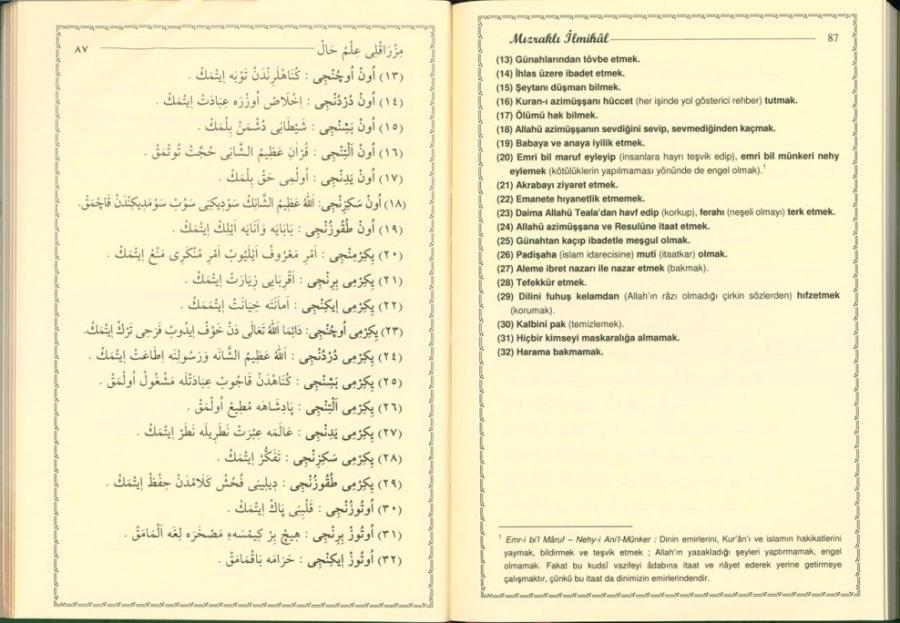 مِزْرَاقْلِى عِلْمُ حَالْ ٨٧
(١٣) اُونْ اُوچُنْجِى : كُنَاهْلَرِنْدَنْ تَوْبَه اِيتْمَكْ .
(١٤) اُونْ دُرْدُنْجِى : اِخْلَاصْ اُوزْرَه عِبَادَتْ اِيتْمَكْ .
(١٥) اُونْ بَشِنْجِى : شَيْطَانِى دُشْمَنْ بِلْمَكْ .
(١٦) اُونْ اَلْتِنْجِى : قُرْاٰنِ عَظِيمُ الشَّانِى حُجَّتْ تُوتْمَقْ .
(١٧) اُونْ يَدِنْجِى : اُولُمِى حَقْ بِلْمَكْ .
(١٨) اُونْ سَكِزِنْجِى: اَللهُ عَظِيمُ الشَّانِكْ سَوْدِيكِنِى سَوُبْ سَوْمَدِيكِنْدَنْ قَاچْمَقْ.
(١٩) اُونْ طُقُوزُنْجِى : بَابَايَه وَاَنَايَه اَيْلِكْ اِيتْمَكْ .
(٢٠) يِكِرْمِنْجِى : اَمْرِ مَعْرُوفْ اَيْلَيُوبْ اَمْرِ مُنْكَرِى مَنْعْ اِيتْمَكْ .
(٢١) يِكِرْمِى بِرِنْجِى : اَقْرِبَايِى زِيَارَتْ اِيتْمَكْ .
(٢٢) يِكِرْمِى اِيكِنْجِى : اَمَانَتَه خِيَانَتْ اِيتْمَمَكْ .
(٢٣) يِكِرْمِى اُوچُنْجِى: دَائِمَا اَللهُ تَعَالَى دَنْ خَوْفْ اِيدُوبْ فَرَحِى تَرْكْ اِيتْمَكْ.
(٢٤) يِكِرْمِى دُرْدُنْجِى : اَللهُ عَظِيمُ الشَّانَه وَرَسُولِنَه اِطَاعَتْ اِيتْمَكْ .
(٢٥) يِكِرْمِى بَشِنْجِى : كُنَاهْدَنْ قَاچُوبْ عِبَادَتْلَه مَشْغُولْ اُولْمَقْ .
(٢٦) يِكِرْمِى اَلْتِنْجِى : پَادِشَاهَه مُطِيعْ اُولْمَقْ .
(٢٧) يِكِرْمِى يَدِنْجِى : عَالَمَه عِبْرَتْ نَظَرِيلَه نَظَرْ اِيتْمَكْ .
(٢٨) يِكِرْمِى سَكِزِنْجِى : تَفَكُّرْ اِيتْمَكْ .
(٢٩) يِكِرْمِى طُقُوزُنْجِى : دِيلِينِى فُحُشْ كَلَامْدَنْ حِفْظْ اِيتْمَكْ .
(٣٠) اُوتُوزُنْجِى : قَلْبِنِى پَاكْ اِيتْمَكْ .
(٣١) اُوتُوزْ بِرِنْجِى : هِيچْ بِرْ كِيمْسَهءِ مَصْخَرَه لِغَه اَلْمَامَقْ .
(٣٢) اُوتُوزْ اِيكِنْجِى : حَرَامَه بَاقْمَامَقْ .
Mızraklı İlmihâl 87
(13) Günahlarından tövbe etmek.
(14) İhlas üzere ibadet etmek.
(15) Şeytanı düşman bilmek.
(16) Kuran-ı azimüşşanı hüccet (her işinde yol gösterici rehber) tutmak.
(17) Ölümü hak bilmek.
(18) Allahü azimüşşanın sevdiğini sevip, sevmediğinden kaçmak.
(19) Babaya ve anaya iyilik etmek.
(20) Emri bil maruf eyleyip (insanlara hayrı teşvik edip), emri bil münkeri nehy
eylemek (kötülüklerin yapılmaması yönünde de engel olmak).¹
(21) Akrabayı ziyaret etmek.
(22) Emanete hıyanetlik etmemek.
(23) Daima Allahü Teala'dan havf edip (korkup), ferahı (neşeli olmayı) terk etmek.
(24) Allahü azimüşşana ve Resulüne itaat etmek.
(25) Günahtan kaçıp ibadetle meşgul olmak.
(26) Padişaha (islam idarecisine) muti (itaatkar) olmak.
(27) Aleme ibret nazarı ile nazar etmek (bakmak).
(28) Tefekkür etmek.
(29) Dilini fuhuş kelamdan (Allah'ın râzı olmadığı çirkin sözlerden) hıfzetmek
(korumak).
(30) Kalbini pak (temizlemek).
(31) Hiçbir kimseyi maskaralığa almamak.
(32) Harama bakmamak.
¹ Emr-i bi'l Mâruf – Nehy-i Ani'l-Münker : Dinin emirlerini, Kur'ân'ı ve islamın hakikatlerini
yaymak, bildirmek ve teşvik etmek ; Allah'ın yasakladığı şeyleri yaptırmamak, engel
olmamak. Fakat bu kudsî vazifeyi âdabına itaat ve riâyet ederek yerine getirmeye
çalışmaktır, çünkü bu itaat da dinimizin emirlerindendir.